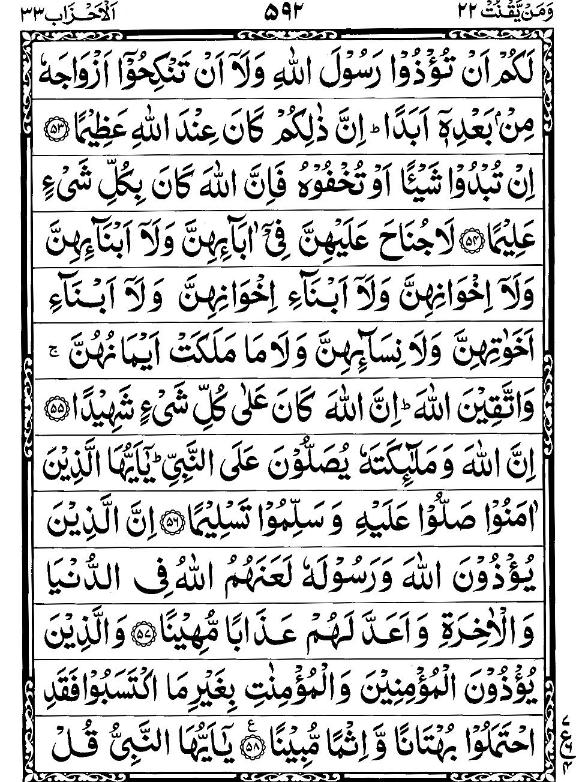 وَمَنْ يَّقْنُتْ ٢٢ ٥٩٢ اَلْاَحْزَاب ٣٣
لَكُمْ اَنْ تُؤْذُوْا رَسُوْلَ اللّٰهِ وَلَآ اَنْ تَنْكِحُوْٓا اَزْوَاجَهٗ
مِنْۢ بَعْدِهٖٓ اَبَدًا ؕ اِنَّ ذٰلِكُمْ كَانَ عِنْدَ اللّٰهِ عَظِيْمًا ۝۵۳
اِنْ تُبْدُوْا شَيْـًٔا اَوْ تُخْفُوْهُ فَاِنَّ اللّٰهَ كَانَ بِكُلِّ شَيْءٍ
عَلِيْمًا ۝۵۴ لَا جُنَاحَ عَلَيْهِنَّ فِيْٓ اٰبَآئِهِنَّ وَلَآ اَبْنَآئِهِنَّ
وَلَآ اِخْوَانِهِنَّ وَلَآ اَبْنَآءِ اِخْوَانِهِنَّ وَلَآ اَبْنَآءِ
اَخَوٰتِهِنَّ وَلَا نِسَآئِهِنَّ وَلَا مَا مَلَكَتْ اَيْمَانُهُنَّ ۚ
وَاتَّقِيْنَ اللّٰهَ ؕ اِنَّ اللّٰهَ كَانَ عَلٰى كُلِّ شَيْءٍ شَهِيْدًا ۝۵۵
اِنَّ اللّٰهَ وَمَلٰٓئِكَتَهٗ يُصَلُّوْنَ عَلَى النَّبِيِّ ؕ يٰٓاَيُّهَا الَّذِيْنَ
اٰمَنُوْا صَلُّوْا عَلَيْهِ وَسَلِّمُوْا تَسْلِيْمًا ۝۵۶ اِنَّ الَّذِيْنَ
يُؤْذُوْنَ اللّٰهَ وَرَسُوْلَهٗ لَعَنَهُمُ اللّٰهُ فِي الدُّنْيَا
وَالْاٰخِرَةِ وَاَعَدَّ لَهُمْ عَذَابًا مُّهِيْنًا ۝۵۷ وَالَّذِيْنَ
يُؤْذُوْنَ الْمُؤْمِنِيْنَ وَالْمُؤْمِنٰتِ بِغَيْرِ مَا اكْتَسَبُوْا فَقَدِ
احْتَمَلُوْا بُهْتَانًا وَّاِثْمًا مُّبِيْنًا ۝۵۸ ع يٰٓاَيُّهَا النَّبِيُّ قُلْ